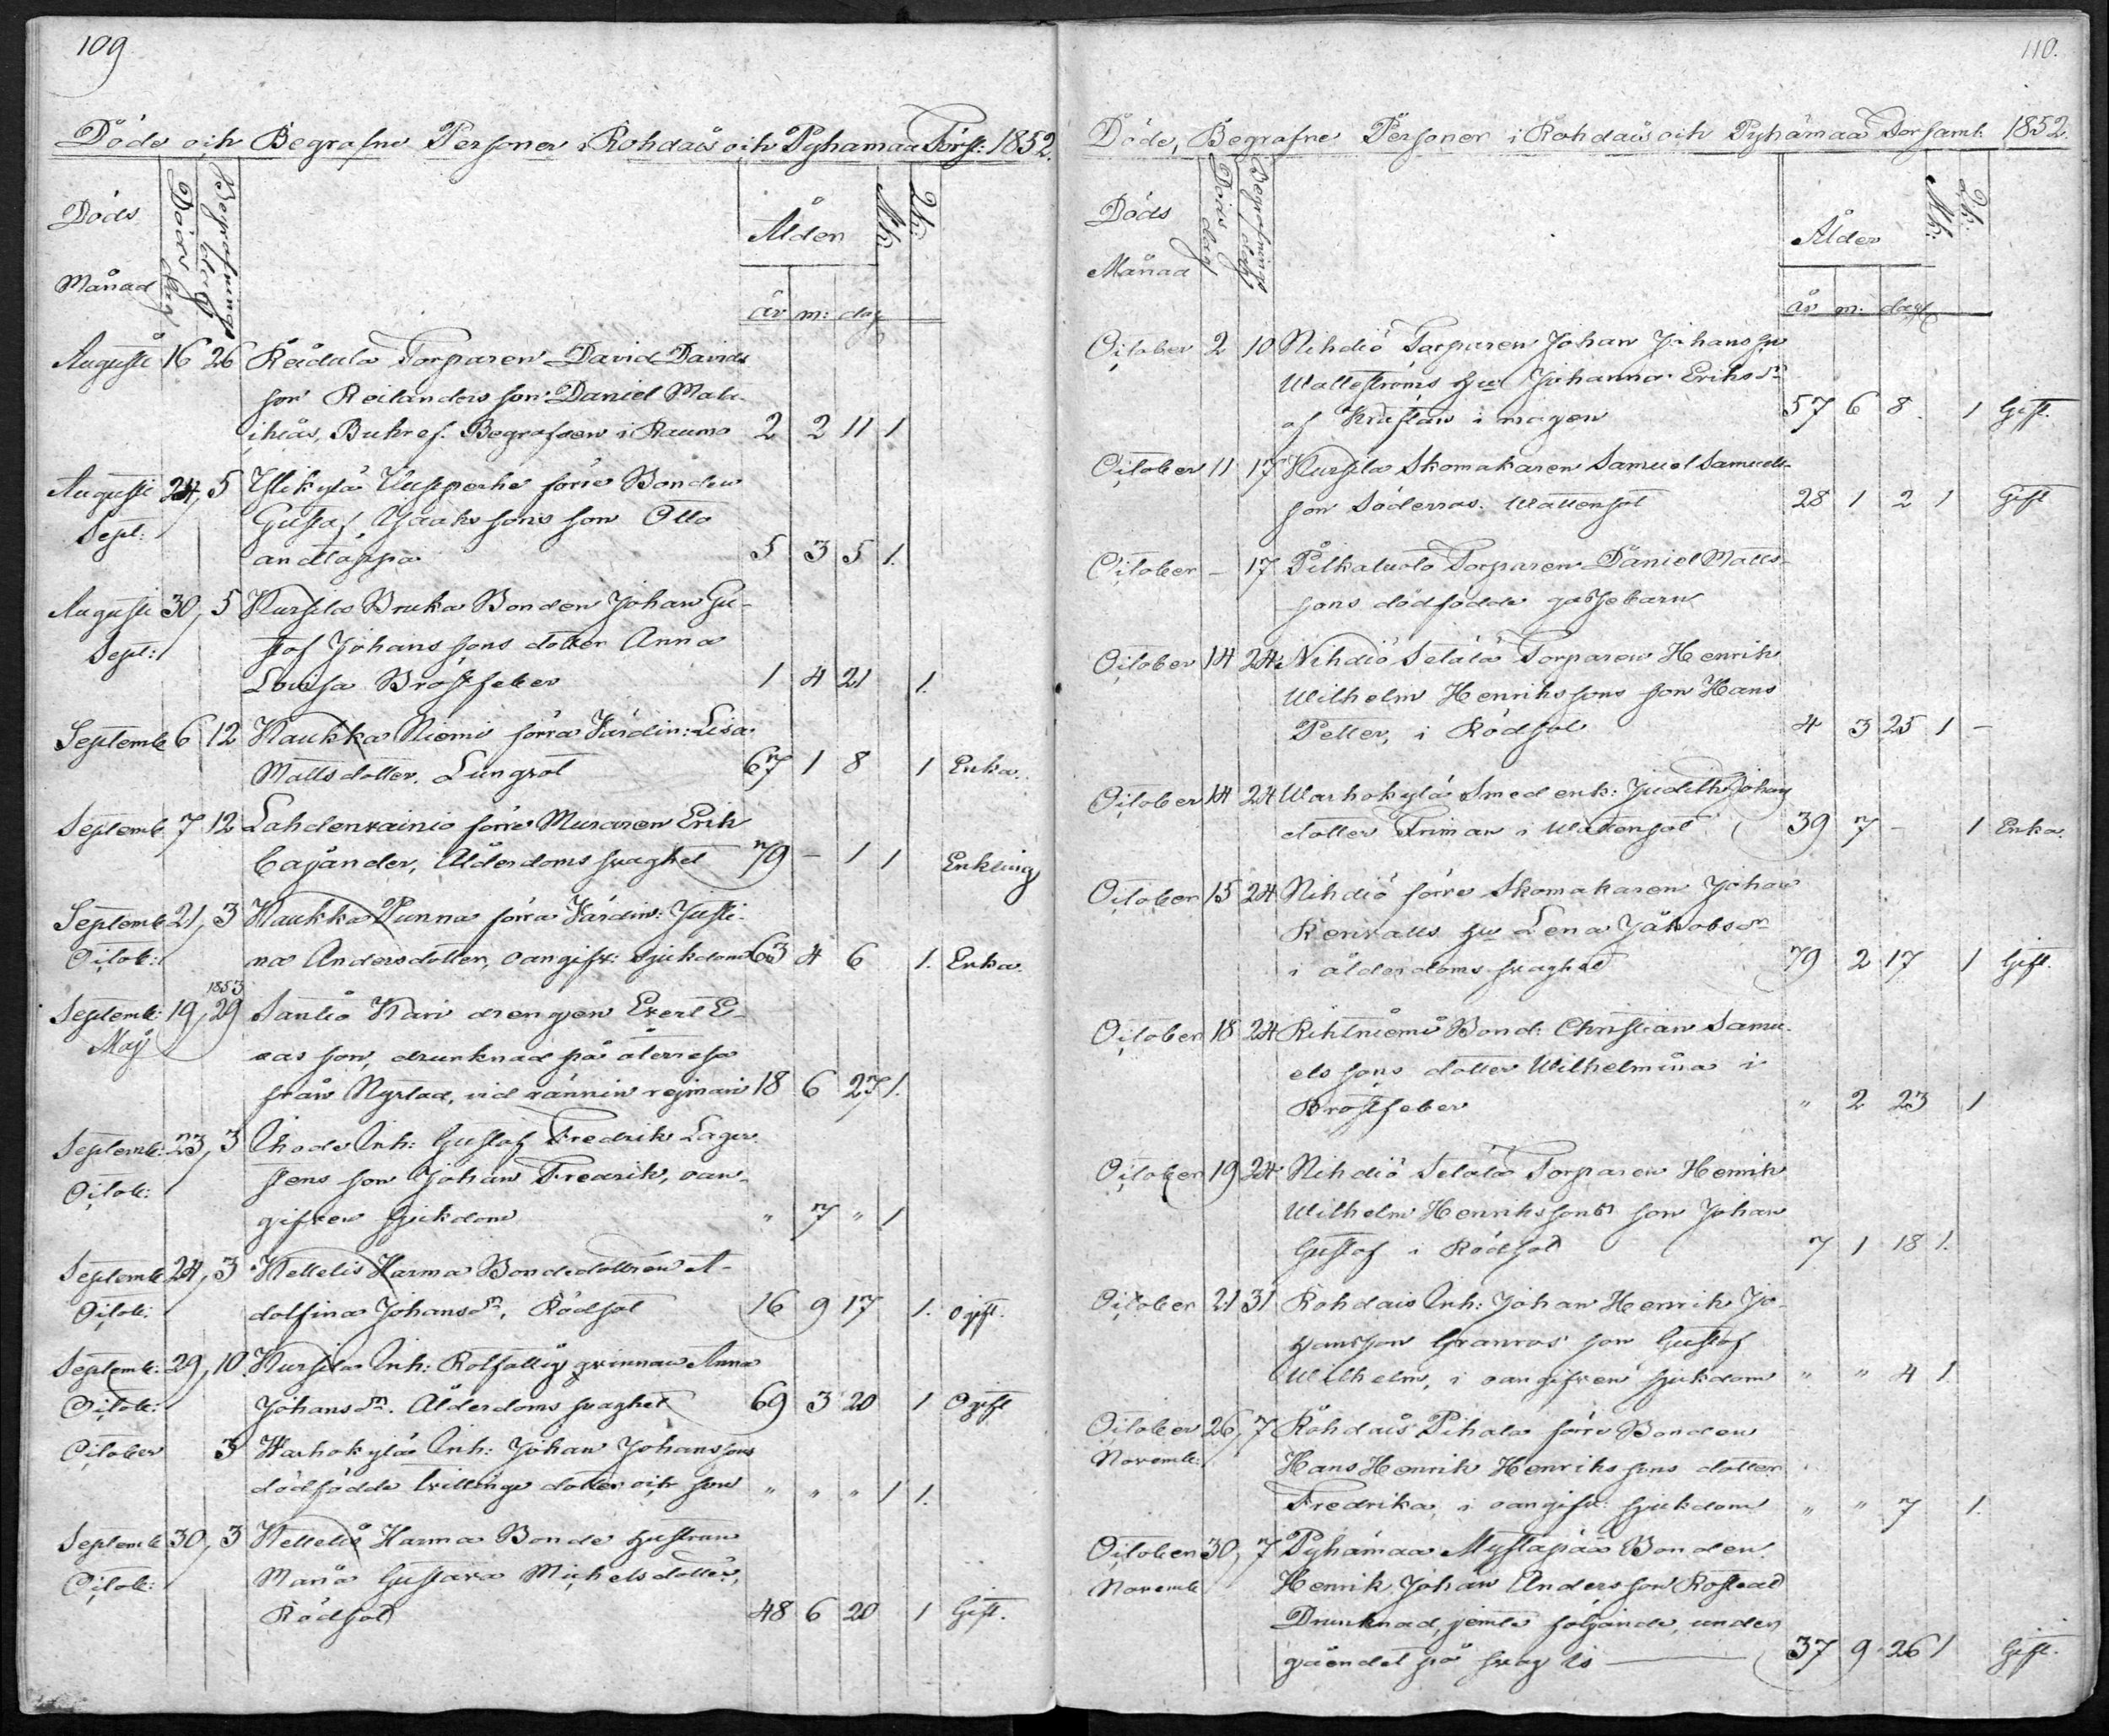 109
Döde och Begrafne Personer i Rohdais och Pyhämaa Förs: 1852.
Döds
Månad
Döds dag
Begrafnings dag
Ålder
år m: dag
Mk:
Qk:
Augusti 16 26 Rådula Torparen David Davids
son Reilanders son Daniel Mala
ikiäs, Bukref. Begrafven i Raumo 2 2 11 1
Augusti 24, 5 Ylikylä Uusperhe förre Bonden
Sept: Gustaf Isaakssons son Otto
andtäppa 5 3 5 1.
Augusti 30, 5 Kursila Bruka Bonden Johan Gu-
Sept: staf Johanssons dotter Anna
Lovisa Bröstfeber 1 4 21 1.
Septemb 6 12 Kaukka Niemi förra Värdin: Lisa
Mattsdotter. Lungsot 67 1 8 1 Enka.
Septemb 7 12 Lahdenvainio förre Muraren Erik
Cajander, Ålderdoms svaghet 79 - 1 1 Enkling
Septemb 21, 3 Kaukka Nunna förra Värdin: Justi-
Octob: na Andersdotter, oangifv: sjukdom 63 4 6 1. Enka
1853
Septemb: 19, 29 Santiö Kari drengen Evert E-
Maj sas son, drunknad på återresa
från Nystad, vid rännin rejmari 18 6 27 1.
Septemb: 23, 3 Ihode Inh: Gustaf Fredrik Lager
Octob: stens son Johan Fredrik, oan-
gifven sjukdom " 7 " 1
Septemb 24, 3 Kettelis Harma Bondedottren A-
Octob: dolfina Johansdr, Rödsot 16 9 17 1. ogift.
Septemb: 29, 10 Kursila Inh: Rotfattig qvinnan Anna
Octob: Johansdr. Ålderdoms svaghet 69 3 20 1 Ogift
October 3 Warhokylä Inh: Johan Johanssons
dödfödda tvillinge dotter och son " " " 1 1.
Septemb 30, 3 Kettelis Harma Bonde hustrun
Octob: Maria Gustava Michelsdotter,
Rödsot 48 6 20 1 Gift.
110.
Döde, Begrafne Personer i Rohdais och Pyhämaa Forsaml: 1852.
Döds
Månad
Döds dag
Begrafnings dag
Ålder
år m: dag
Mk:
Qk:
October 2 10 Nihdiö Torparen Johan Johansson
Wallströms hu Johanna Eriksdr
af Kräftan i magen 57 6 8 1 Gift.
October 11 17 Kursila Skomakaren Samuel Samuels
son Söderros. Wattensot 28 1 2 1 Gift
October - 17 Pitkaluoto Torparen Daniel Matts-
sons dödfödda gossebarn
October 14 24 Nihdiö Setälä Torparen Henrik
Wilhelm Henrikssons son Hans
Petter, i Rödsot 4 3 25 1 -
October 14 24 Warhokylä Smed enk: Judith Johans
dotter Friman i Wattensot 39 7 - 1 Enka.
October 15 24 Nihdiö förre Skomakaren Johan
Renvalls hu Lena Jakobsdr
i ålderdoms svaghet 79 2 17 1 Gift.
October 18 24 Rihtniemi Bond: Christian Samu-
elssons dotter Wilhelmina i
Bröstfeber " 2 23 1
October 19 24 Nihdiö Setälä Torparen Henrik
Wilhelm Henrikssons son Johan
Gustaf i Rödsot 7 1 18 1.
October 21 31 Rohdais Inh: Johan Henrik Jo-
hansson Granros' son Gustaf
Wilhelm, i oangifven sjukdom " " 4 1
October 26, 7 Rohdais Pihala förre Bonden
Novemb: Hans Henrik Henrikssons dotter
Fredrika, i oangifv: sjukdom " " 7 1.
October 30, 7 Pyhämaa Myllapää Bonden
Novemb Henrik Johan Andersson Rostedt
Drunknad, jemte följande, under
gåendet på svag is 37 9 26 1 Gift.